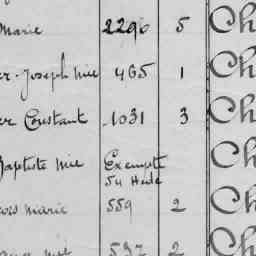 Marie 2296 5 Ch
er. Joseph Mie 465 1 Ch
er Constant 1031 3 Ch
Baptiste Mie Exempte Ch
54 
ois Marie 559 2 Ch
Mie 537 2 Ch